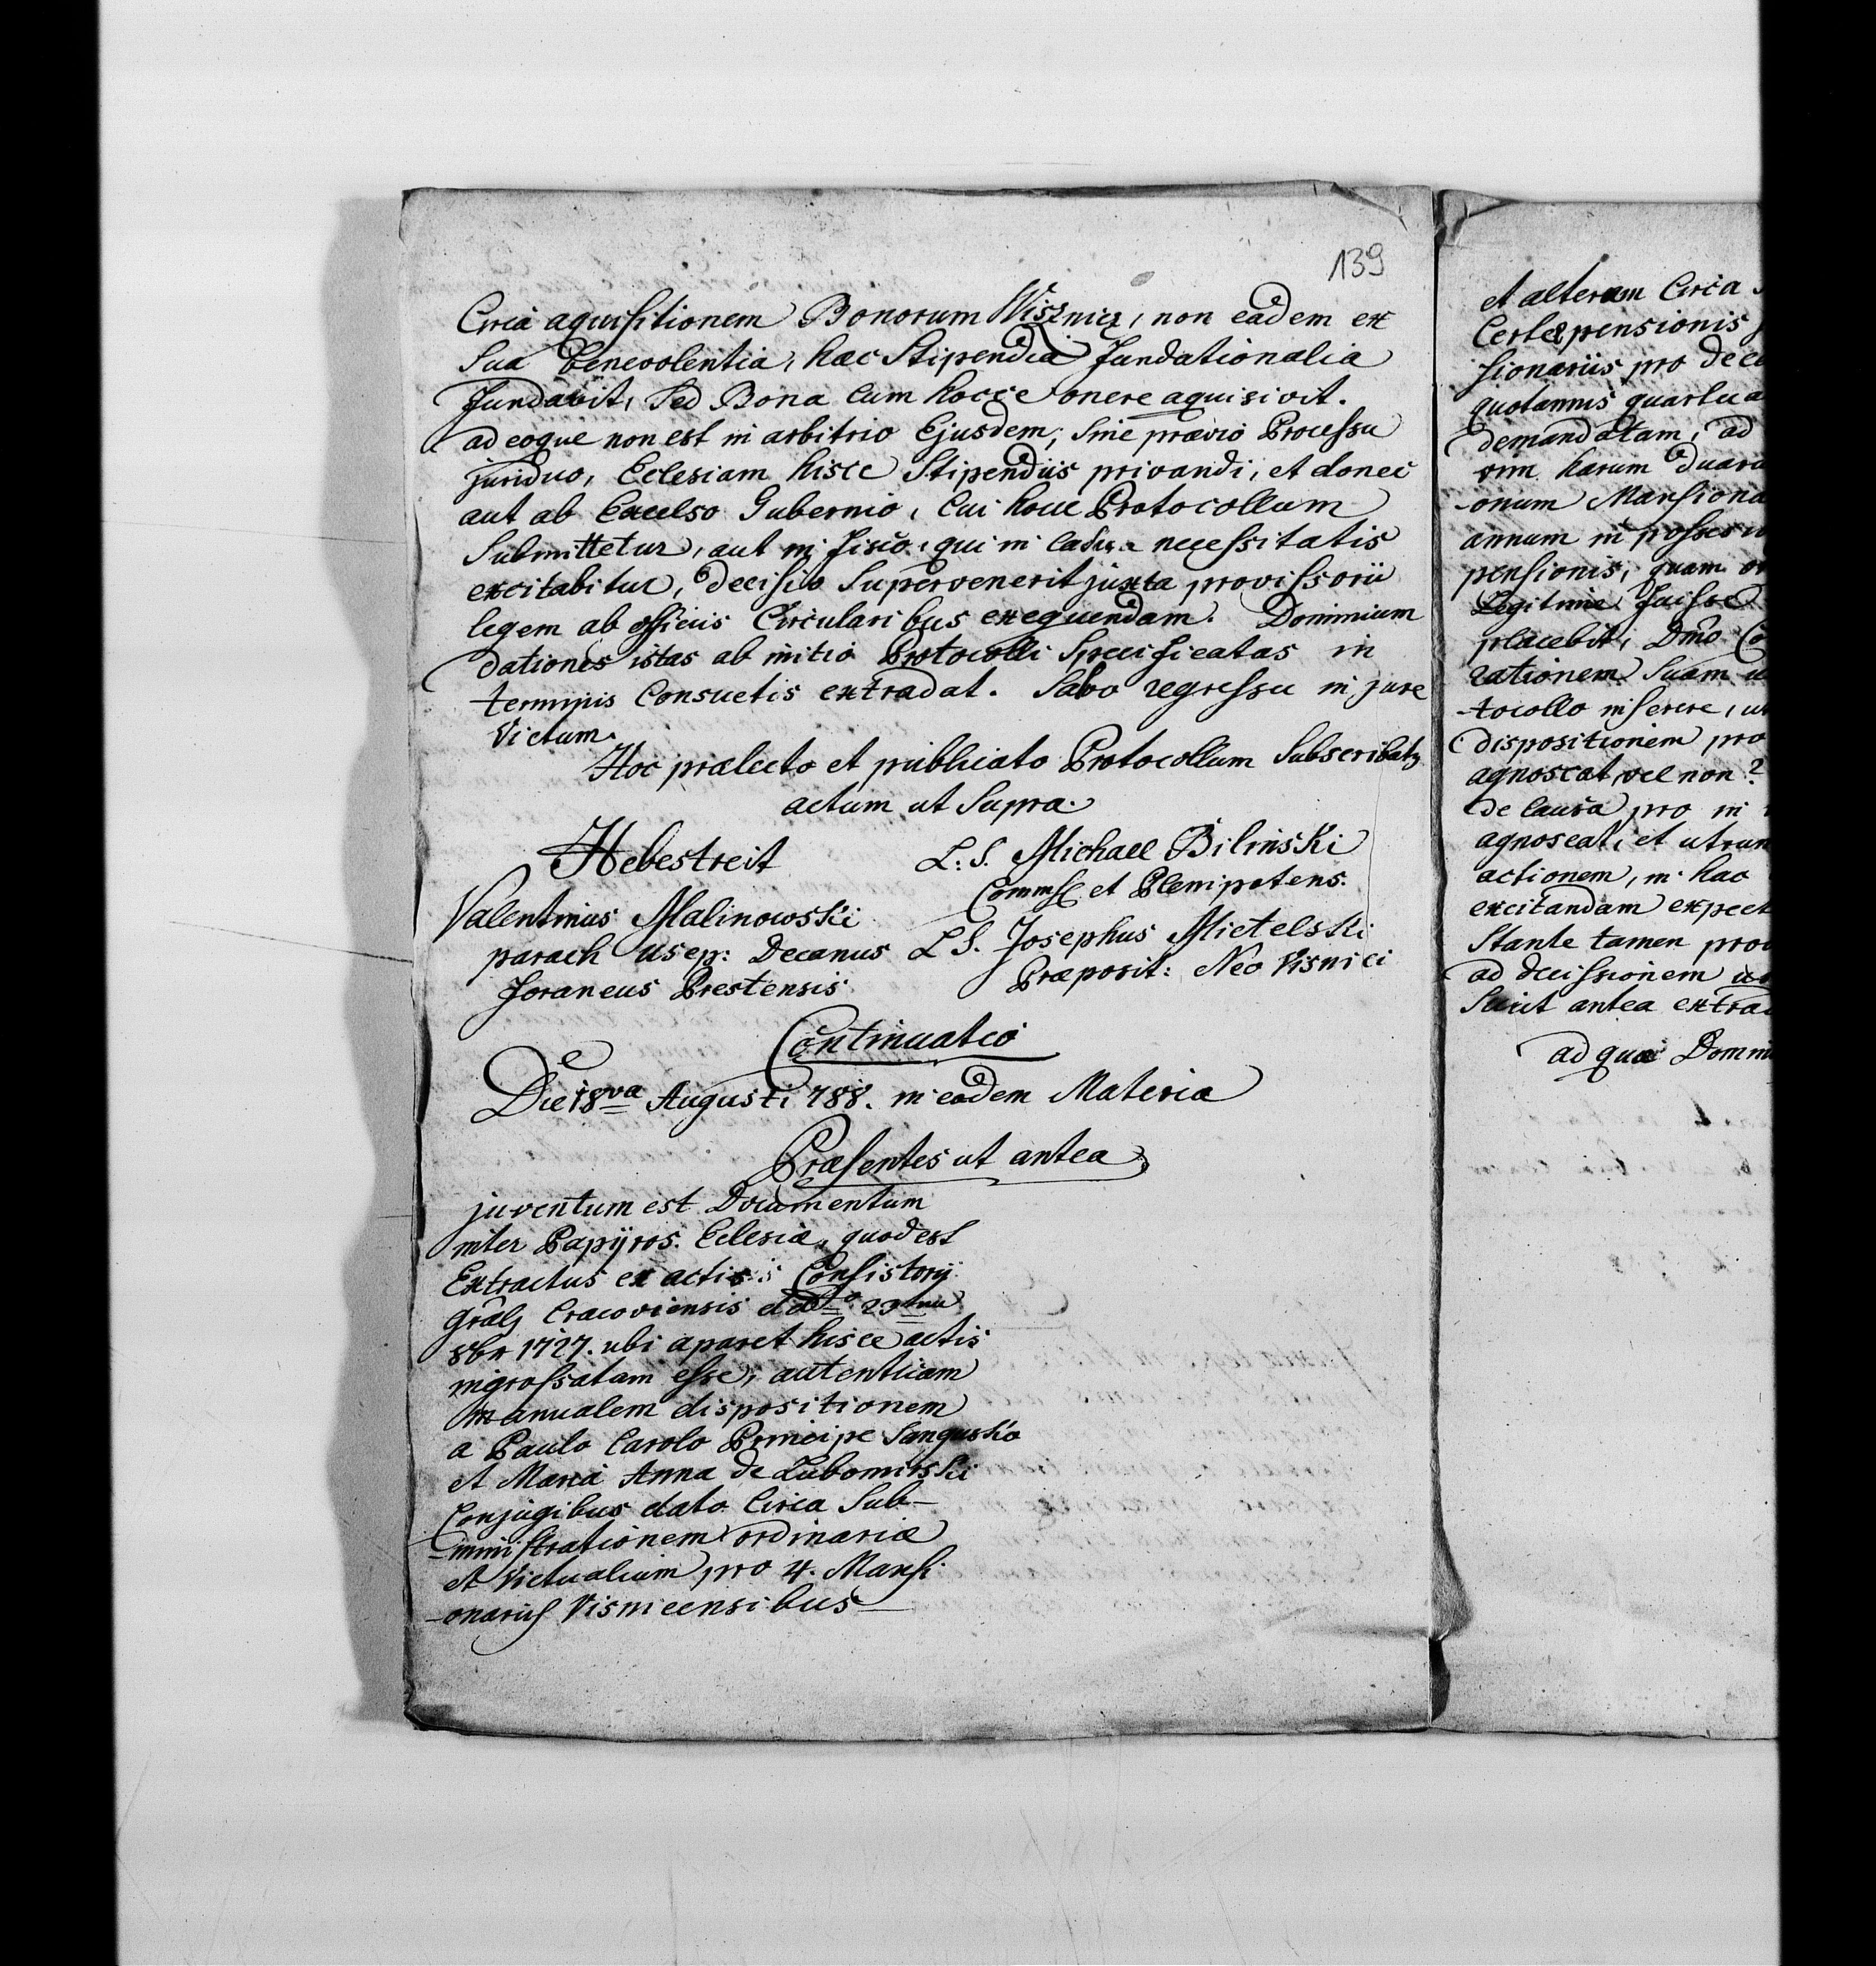 139
Circa aquisitionem Bonorum Wisznicz, non eadem ex
Sua benevolentia, hæc Stipendia fundationalia
fundavit, Sed Bona Cum hocce onere aquisivit.
adeoque non est in arbitrio Ejusdem, Sine prævio Processu
juridico, Eclesiam hisce Stipendiis privandi, et donec
aut ab Excelso Gubernio, Cui hocce Protocollum
Submittetur, aut in fisco, qui in Casu necessitatis
excitabitur, decisio Supervenerit juxta provissorii
legem ab officiis Circularibus exequendam. Dominium
dationes istas ab initio Protocolli Specificatas in
terminis Consuetis extradat. Salvo regressu in jure
Victum.
Hoc prælecto et publicato Protocollum Subscribatz
actum ut Supra.
Hebestreit
L. S. Michael Bilinski
Commss et Plenipotens.
Valentinus Malinowski
paroch Usep: Decanus
foraneus Brestensis
L S. Josephus Mietelski
Præposit: Neo Visnici
Continuatio
Die 18va Augusti 788. in eadem Materia
Præsentes ut antea
juventum est Documentum
inter Papÿros Eclesiæ, quod est
Extractus ex actis Consistorÿ
Grãlz Cracoviensis ddto 23
8br 1727. ubi aparet hisce actis
ingrossatam esse, autenticam
manualem dispositionem
a Paulo Carolo Principe Sangusko
et Maria Anna de Lubomirski
Conjugibus dato Circa Sub-
-ministrationem ordinaria
et Victualium pro 4. Mansi
-onariis Visnicensibus
et alteram Circa
Certæ pensionis
sionariis pro
quotannis
demandatam, ad
harum
-onum
annum in
pensionis, quam
Legitime fuisse
placebit, Dmo
rationem Suam
-tocollo inserere,
dispositionem pro
agnoscat, vel non?
de Causa pro in
agnoscat, et
actionem, in hac
excitandam
Stante tamen
ad decissionem
Sicut antea
ad quæ